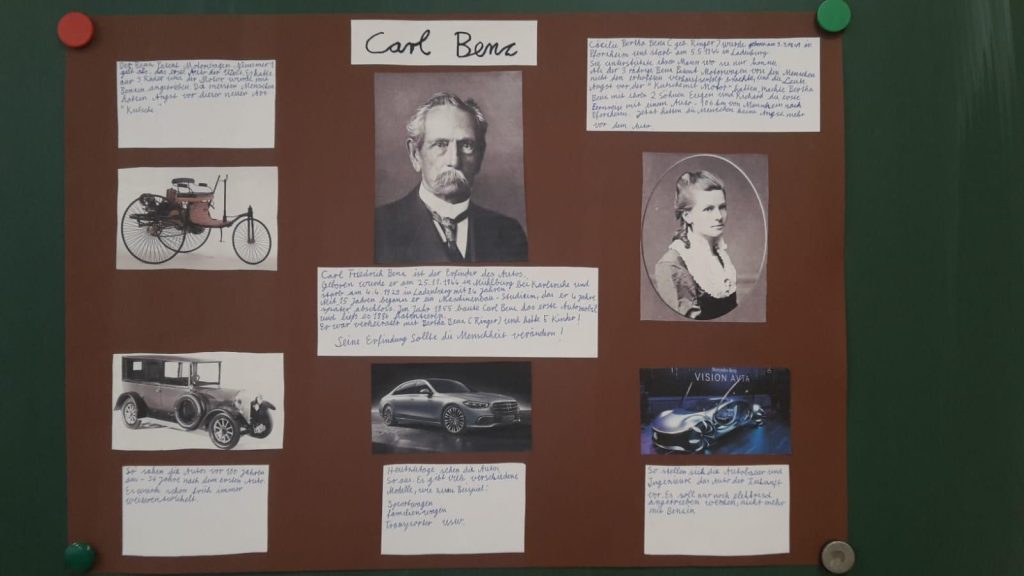 Carl Benz
Der Benz Patent Motorwagen Nummer 1
gilt als das erste Auto der Welt. Er hatte
nur 3 Räder und der Motor wurde mit
Benzin angetrieben. Die meisten Menschen
hatten Angst vor dieser neuen Art
"Kutsche"
Carl Friedrich Benz ist der Erfinder des Autos.
Geboren wurde er am 25.11.1844 in Mühlburg bei Karlsruhe und
starb am 4.4.1929 in Ladenburg mit 84 Jahren
Mit 15 Jahren begann er ein Maschinenbau-Studium, das er 4 Jahre
später abschloss. Im Jahr 1885 baute Carl Benz das erste Automobil
und ließ es 1886 patentieren.
Er war verheiratet mit Bertha Benz (Ringer) und hatte 5 Kinder!
Seine Erfindung sollte die Menschheit verändern!
Cäcilie Bertha Benz (geb. Ringer) wurde in
Pforzheim und starb am 5.5.1944 in Ladenburg.
Sie unterstützte ihren Mann wo sie nur konnte.
Als der 3 rädrige Benz Patent Motorwagen von den Menschen
nicht den erhofften Verkaufserfolg brachte, und die Leute
Angst vor der "Kutsche mit Motor" hatten, machte Bertha
Benz mit ihren 2 Söhnen Eugen und Richard die erste
Fernreise mit einem Auto - 106 km von Mannheim nach
Pforzheim. Jetzt hatten die Menschen keine Angst mehr
vor dem Auto
Mercedes-Benz
VISION AVTR
So sahen die Autos vor 100 Jahren
aus - 36 Jahre nach dem ersten Auto.
Es wurde schon früh immer
weiterentwickelt.
Heutzutage sehen die Autos
So aus. Es gibt viele verschiedene
Modelle, wie zum Beispiel:
Sportwagen
Familienwagen
Transporter usw.
So stellen sich die Autobauer und
Ingenieure das Auto der Zukunft
vor. Es soll nur noch elektrisch
angetrieben werden, nicht mehr
mit Benzin